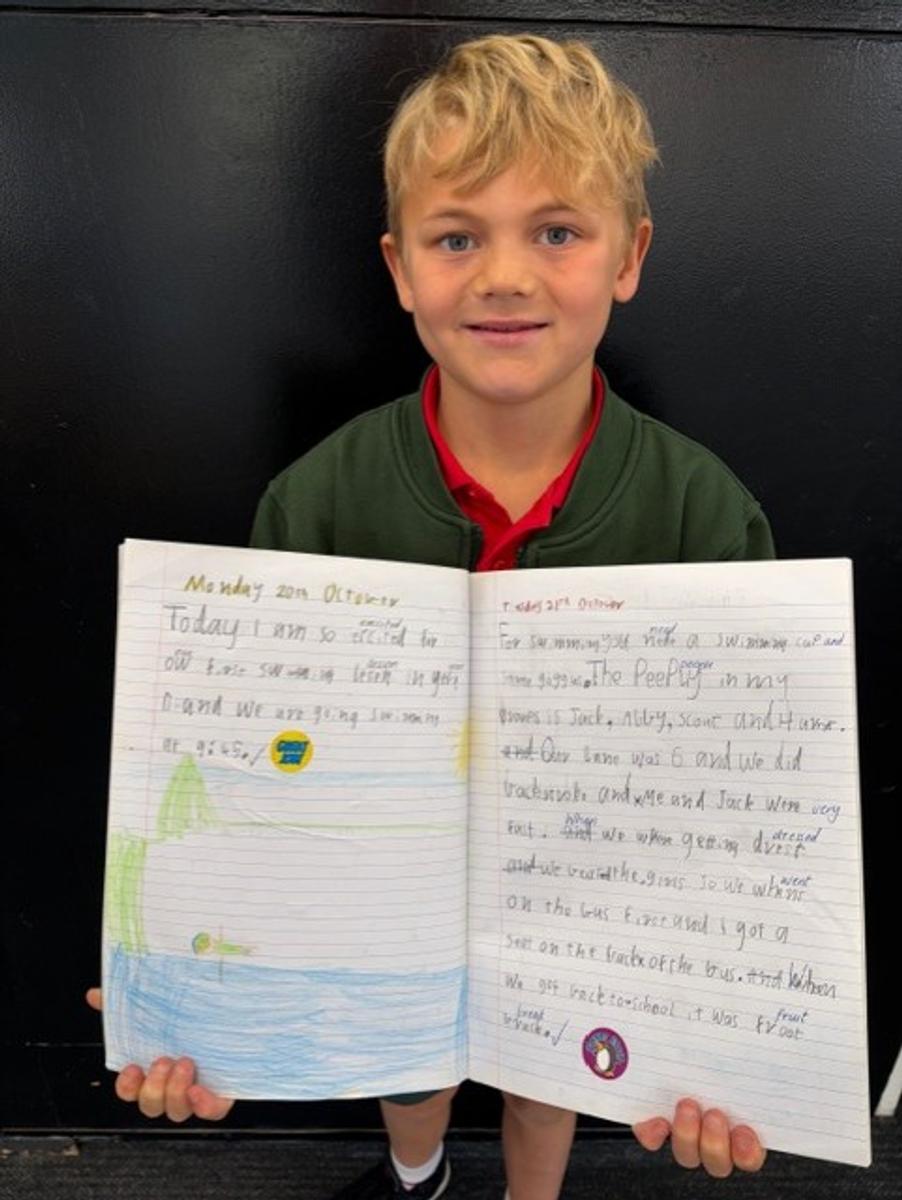 Monday 20th October
excited
Today I am so excited for
our
lesson
our first swimming lesen in
D and we are going swimming
at 9:45.
Tuesday 21st October
need
For swimming you nede a swimming cap and
some
people
The PeePly in my
is Jack, Abby, Scout and
and Our lane was 6 and we did
backstroke and Me and Jack were very
When
dressed
fast. and we when getting drest
went
and we the girls so we
on the bus first and I got a
seat on the back of the bus. And When
fruit
We got back to school it was froot
break